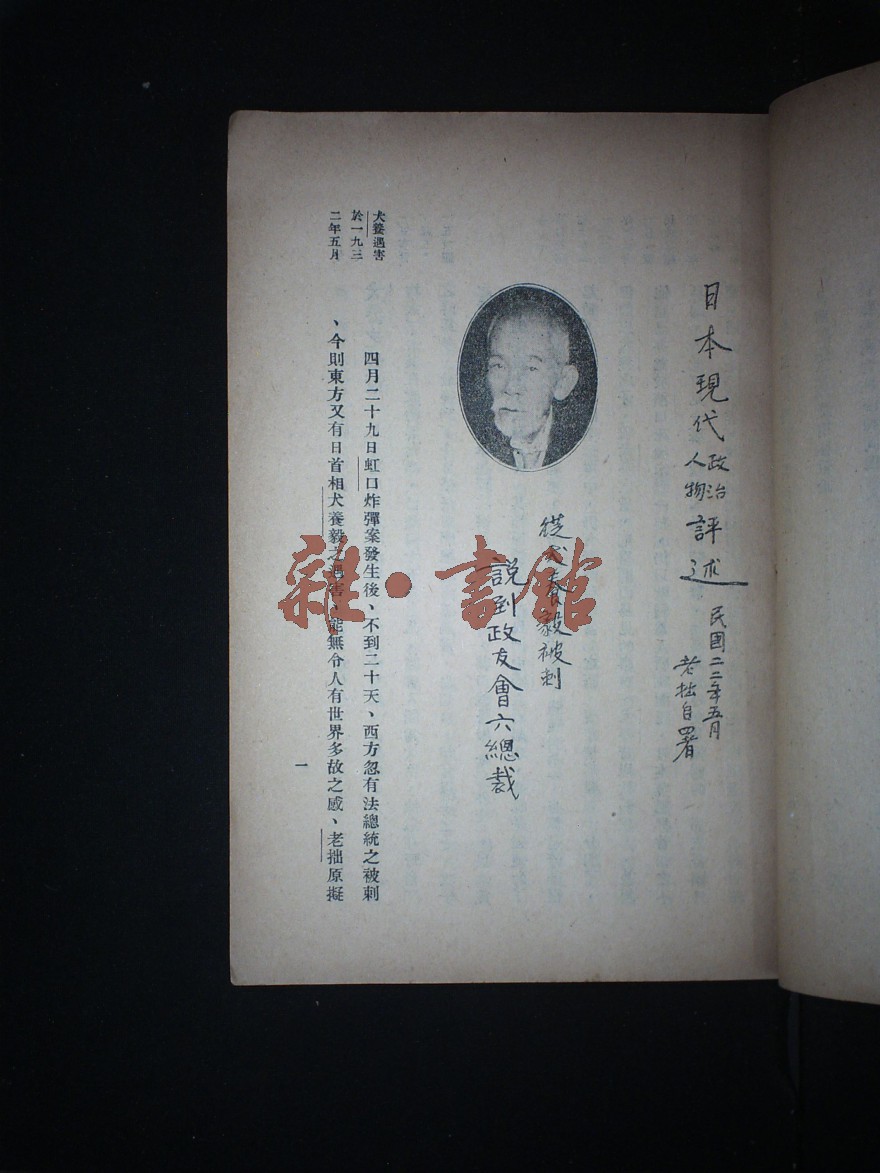 日本現代政治人物評述
民國二二年五月
老拙自署
從犬養毅被刺
說到政友會六總裁
犬養遇害
於一九三
二年五月
四月二十九日虹口炸彈案發生後、不到二十天、西方忽有法總統之被刺
、今則東方又有日首相犬養毅之遇害、能無令人有世界多故之感、老拙原擬
一
雜·書館